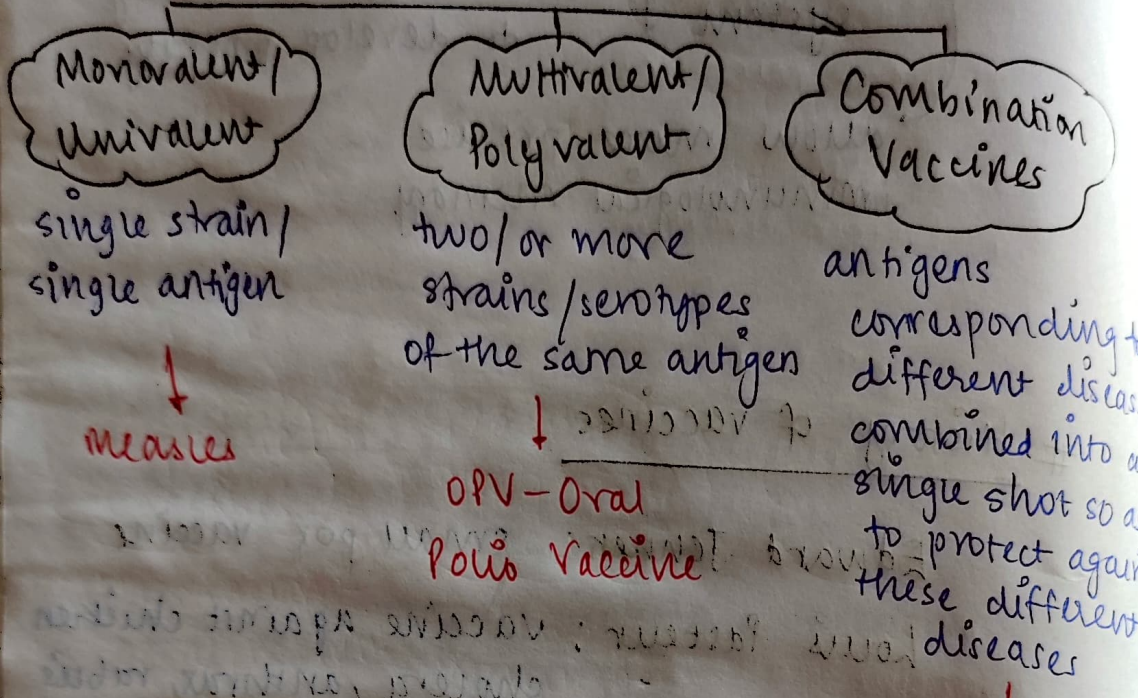 Monovalent/
Univalent
single strain/
single antigen
Measles
Multivalent/
Polyvalent
two/or more
strains/serotypes
of the same antigen
OPV-Oral
Polio Vaccine
Combination
Vaccines
antigens
corresponding
different
combined into
single shot so
to protect
these different
diseases